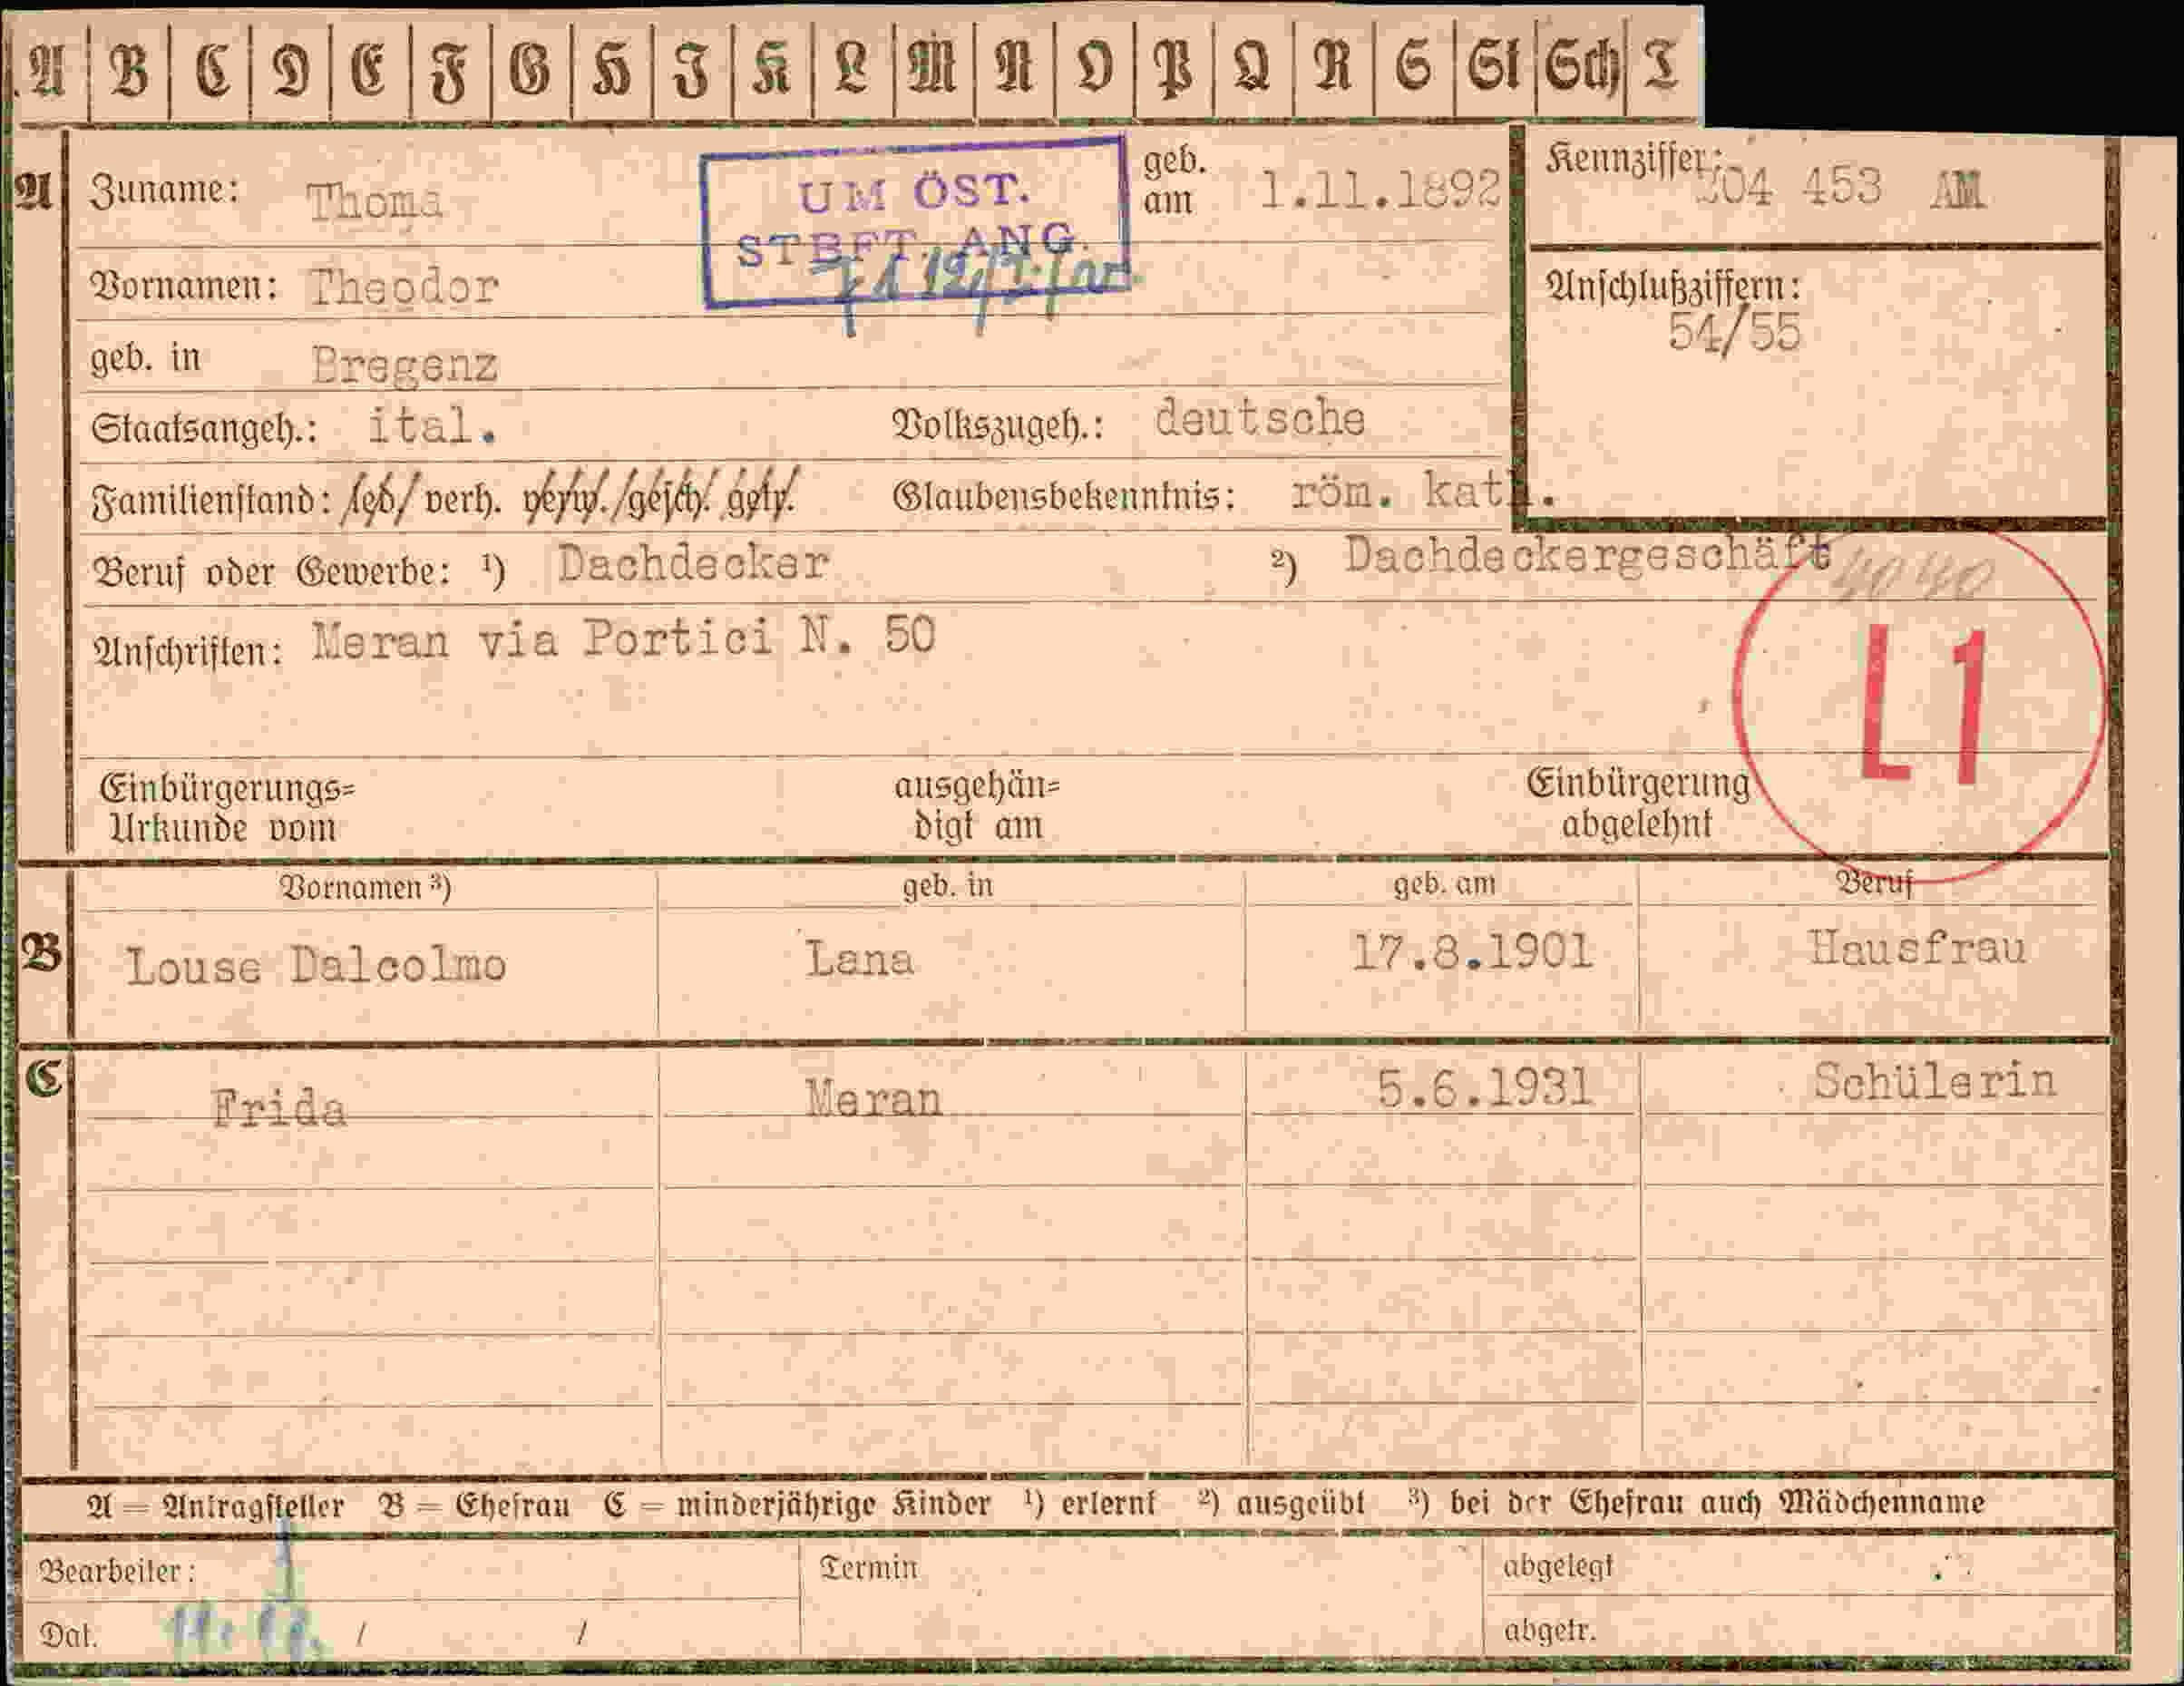 A B C D E F G H I K L M N O P Q R S St Sch T
A Zuname: Thoma
UM ÖST.
STBFT. ANG.
geb. am 1.11.1892
Kennziffer: 204 453 AM
Vornamen: Theodor
Anschlußziffern:
54/55
geb. in Bregenz
Staatsangeh.: ital. Volkszugeh.: deutsche
Familienstand: led/ verh. verw./gesch. getr. Glaubensbekenntnis: röm. kath.
Beruf oder Gewerbe: ¹) Dachdecker ²) Dachdeckergeschäft
4040
Anschriften: Meran via Portici N. 50
L1
Einbürgerungs= ausgehän= Einbürgerung
Urkunde vom digt am abgelehnt
Vornamen ³) geb. in geb. am Beruf
B Louse Dalcolmo Lana 17.8.1901 Hausfrau
C Frida Meran 5.6.1931 Schülerin
A = Antragsteller B = Ehefrau C = minderjährige Kinder ¹) erlernt ²) ausgeübt ³) bei der Ehefrau auch Mädchenname
Bearbeiter: Termin abgelegt
Dat. / / abgetr.